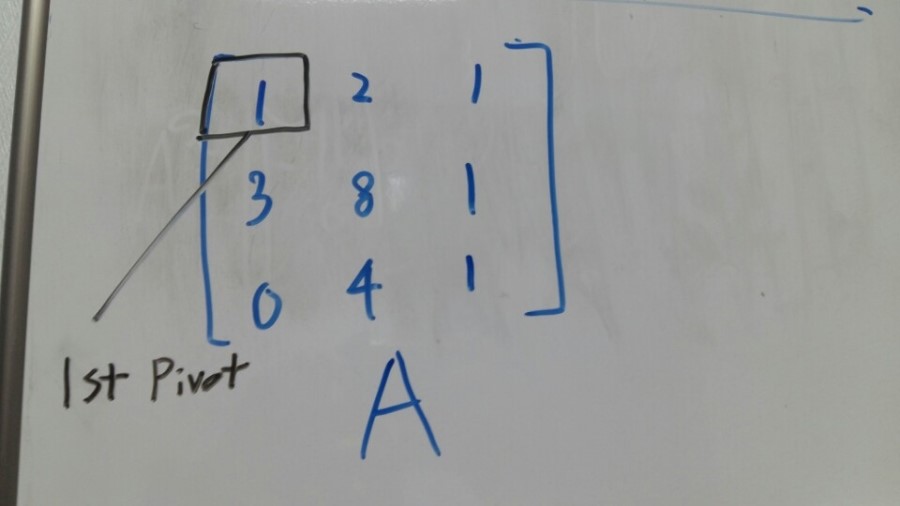 1 2 1
3 8 1
0 4 1
1st Pivot
A